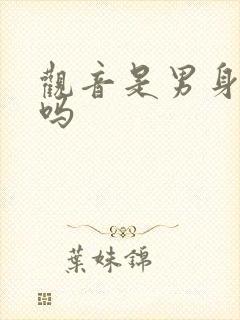 觀音是男身
吗
葉妹錦